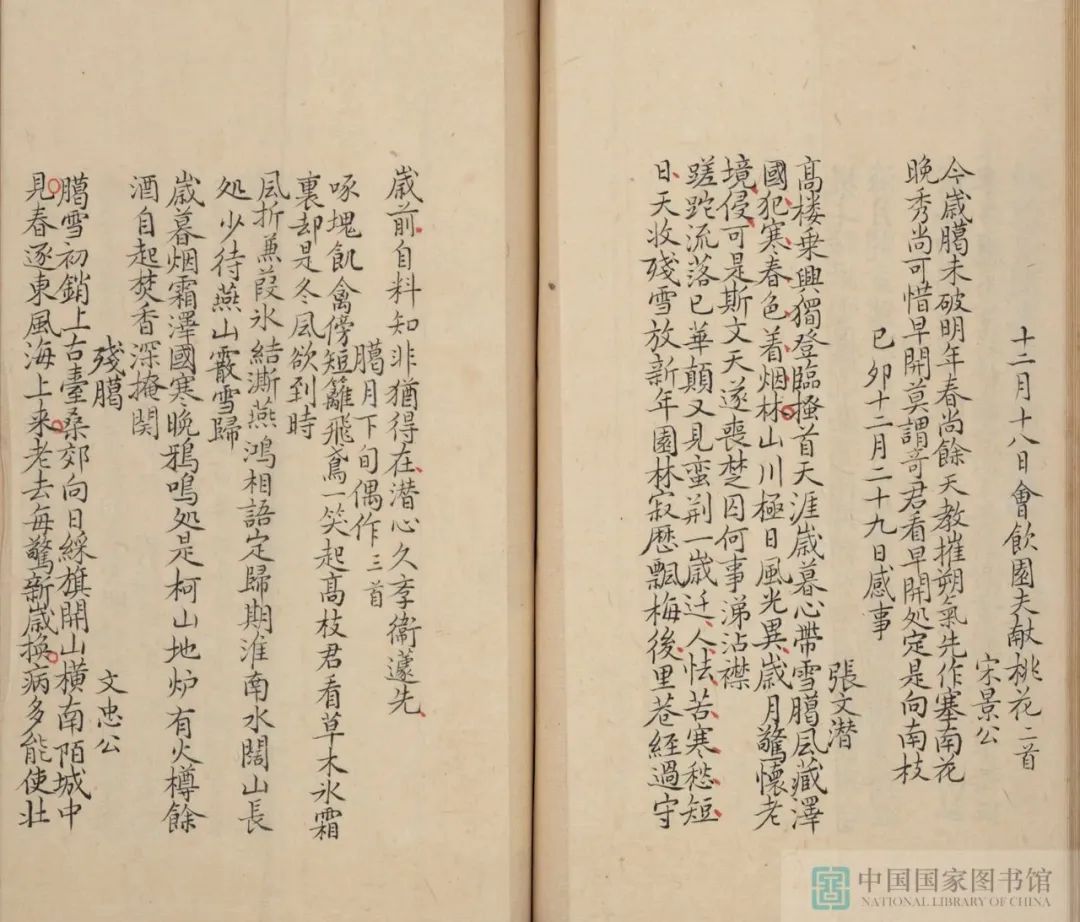 十二月十八日會飲園夫献桃花二首
宋景公
今歲臈未破明年春尚餘天教摧朔氣先作塞南花
晚秀尚可惜早開莫謂竒君看早開处定是向南枝
己卯十二月二十九日感事
張文潛
髙楼乗興獨登臨搔首天涯歲暮心帶雪臈風藏澤
國犯寒春色着烟林山川極日風光異歲月驚懷老
境侵可是斯文天遂喪楚囚何事涕沾襟
蹉跎流落已華顛又見蛮荆一歲迁人怯苦寒愁短
日天收殘雪放新年園林寂歷飄梅後里巷經過守
歲前自料知非猶得在潜心久李衞蘧先
臈月下旬偶作三首
啄塊飢禽傍短籬飛鳶一笑起髙枝君看草木氷霜
裏却是冬風欲到時
風折蒹葭氷結澌燕鴻相語定歸期淮南水闊山長
处少待燕山霰雪歸
歲暮烟霜澤國寒晚鴉鳴处是柯山地炉有火樽餘
酒自起焚香深掩関
殘臈
文忠公
臈雪初銷上古臺桑郊向日綵旗開山橫南陌城中
見春逐東風海上来老去每驚新歲換病多能使壯
中国国家图书馆
NATIONAL LIBRARY OF CHINA